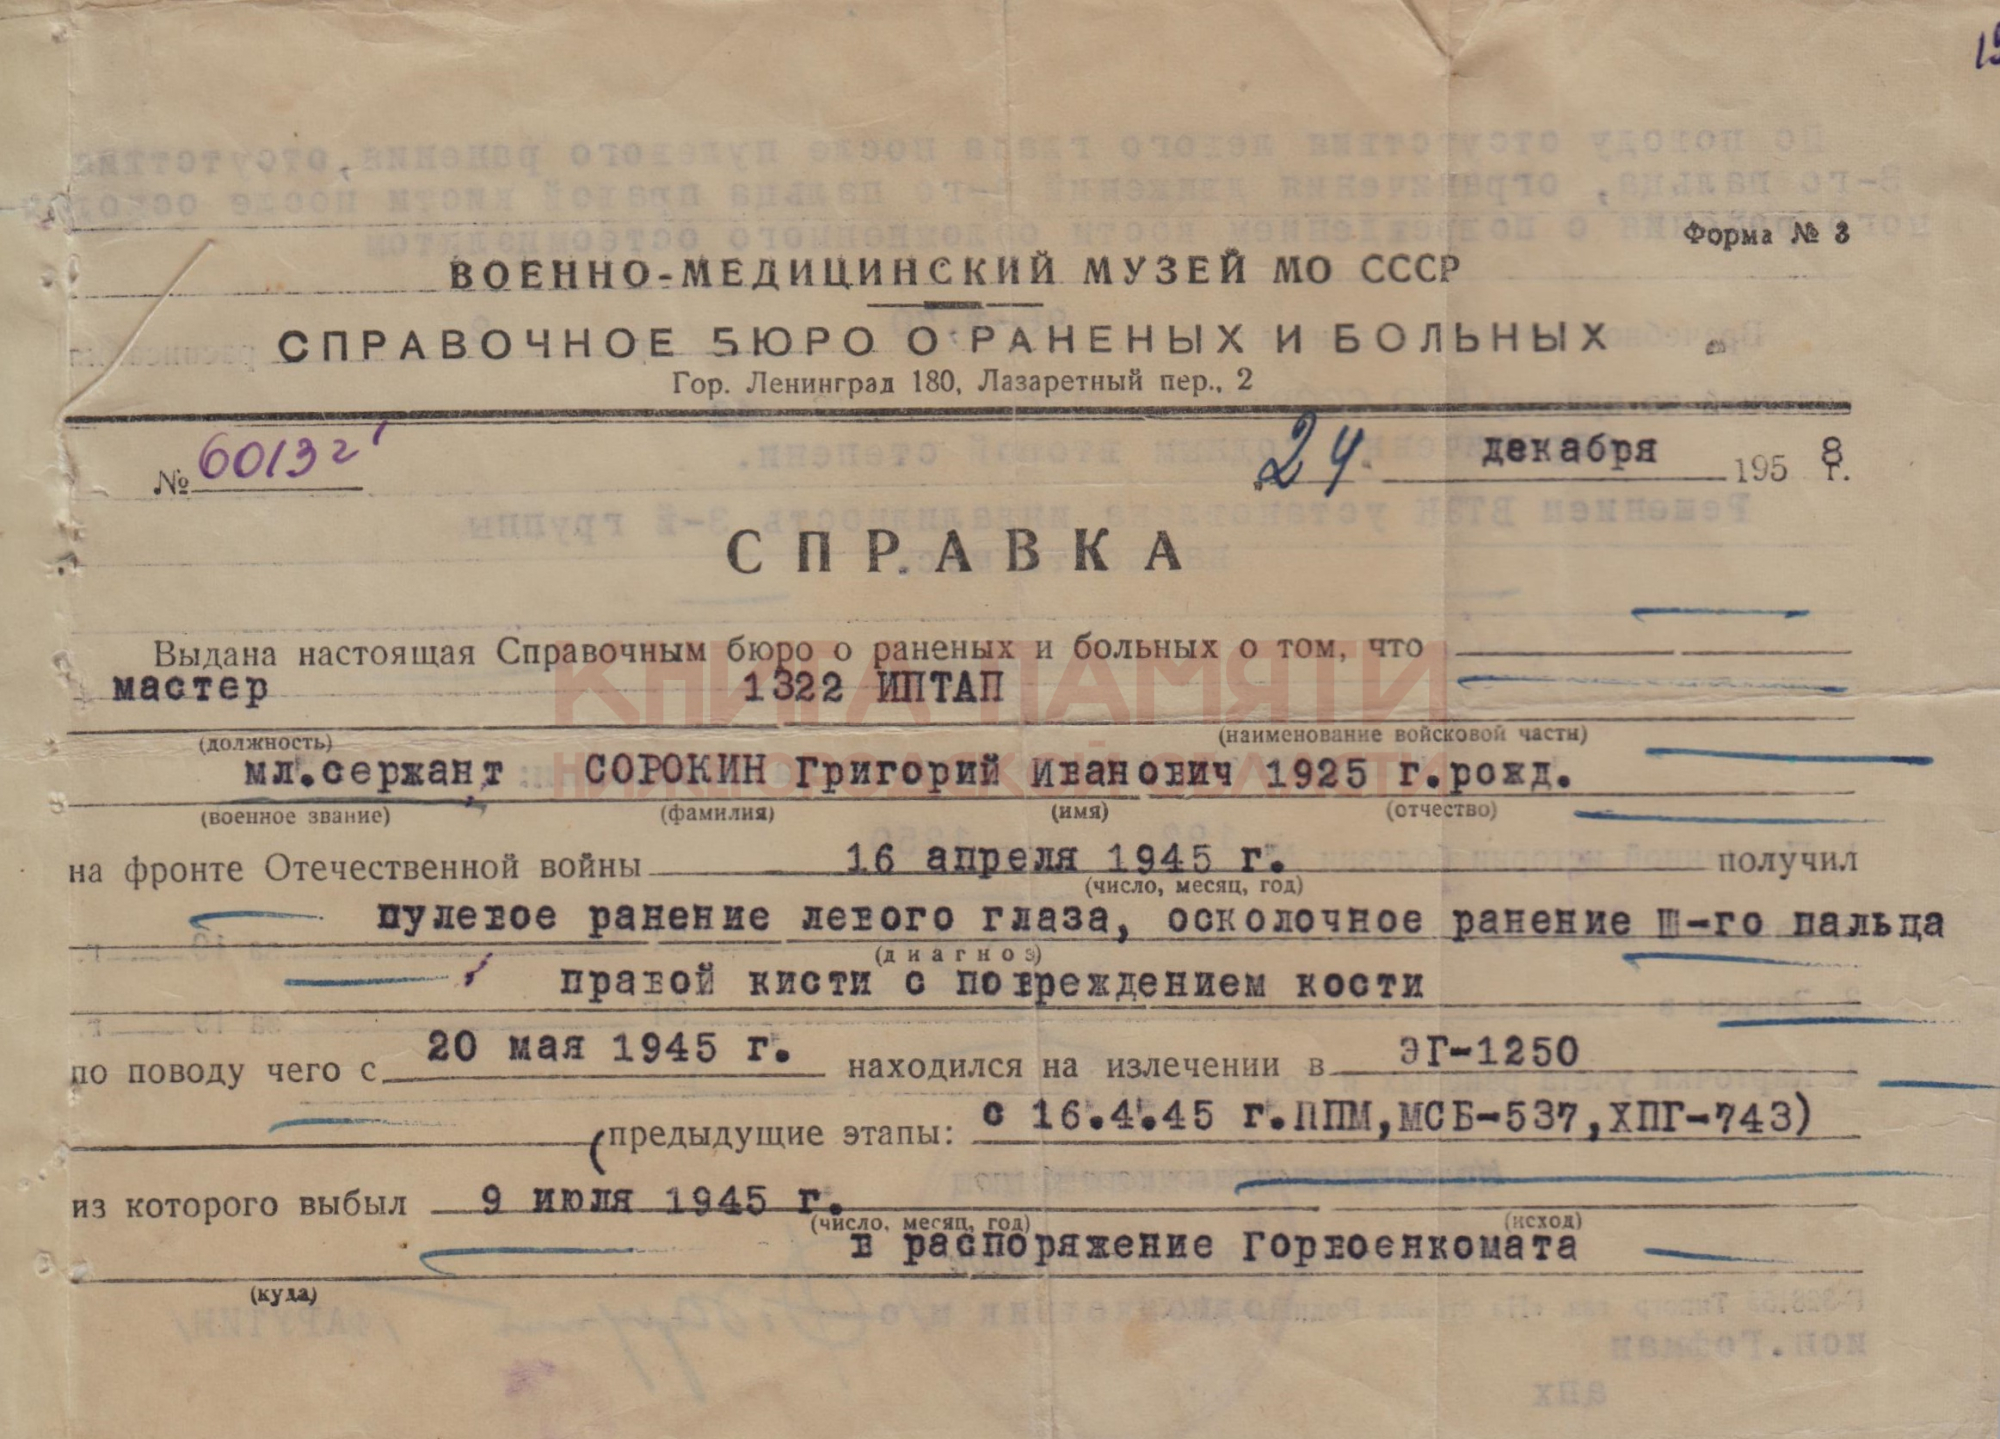 Форма № 3
ВОЕННО-МЕДИЦИНСКИЙ МУЗЕЙ МО СССР
СПРАВОЧНОЕ БЮРО О РАНЕНЫХ И БОЛЬНЫХ
Гор. Ленинград 180, Лазаретный пер., 2
№ 60132 24 декабря 1958 г.
СПРАВКА
Выдана настоящая Справочным бюро о раненых и больных о том, что
мастер 1322 ИПТАП
(должность) (наименование войсковой части)
мл.сержант СОРОКИН Григорий Иванович 1925 г.рожд.
(военное звание) (фамилия) (имя) (отчество)
на фронте Отечественной войны 16 апреля 1945 г. получил
(число, месяц, год)
пулевое ранение левого глаза, осколочное ранение Ш-го пальца
(диагноз)
правой кисти с повреждением кости
по поводу чего с 20 мая 1945 г. находился на излечении в ЭГ-1250
(предыдущие этапы: с 16.4.45 г.ППМ,МСБ-537,ХПГ-743)
из которого выбыл 9 июля 1945 г.
(число, месяц, год) (исход)
в распоряжение Горвоенкомата
(куда)
КНИГА ПАМЯТИ
НИЖЕГОРОДСКОЙ ОБЛАСТИ